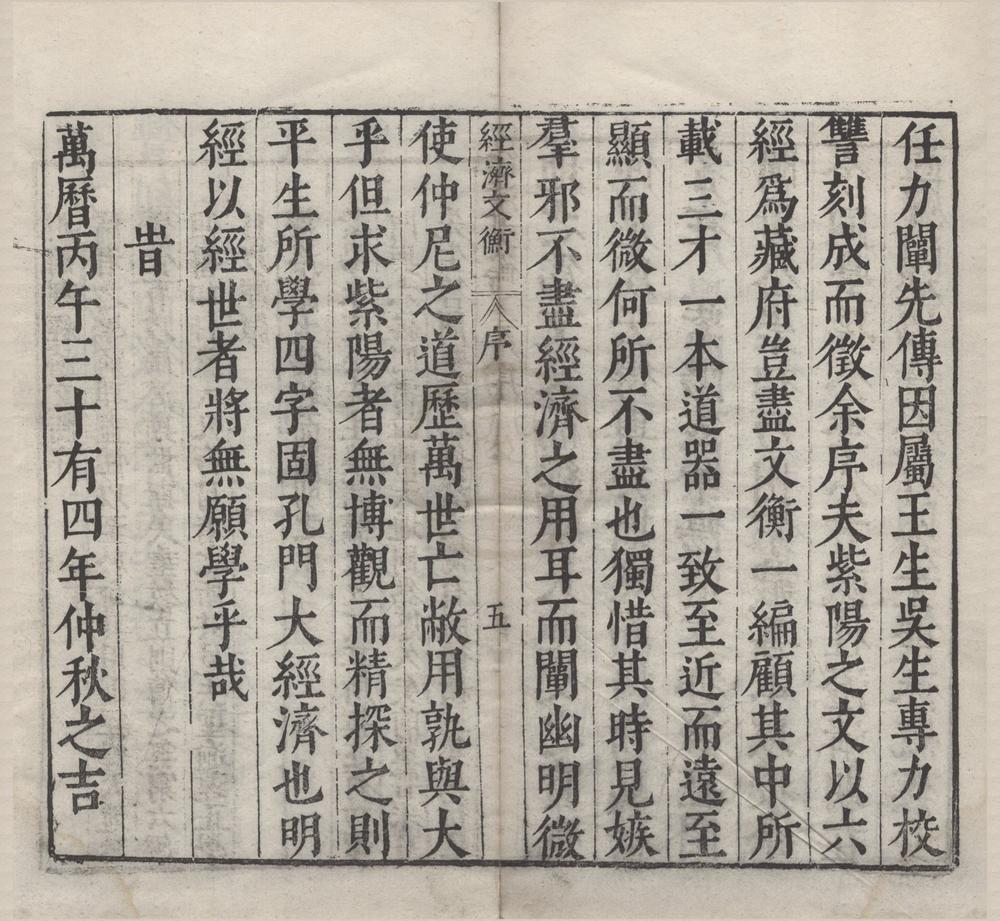 任力闡先傳因屬王生吳生專力校
讐刻成而徵余序夫紫陽之文以六
經為藏府豈盡文衡一編顧其中所
載三才一本道器一致至近而遠至
顯而微何所不盡也獨惜其時見嫉
羣邪不盡經濟之用耳而闡幽明微
經濟文衡 序 五
使仲尼之道歷萬世亡敝用孰與大
乎但求紫陽者無博觀而精探之則
平生所學四字固孔門大經濟也明
經以經世者將無願學乎哉
旹
萬曆丙午三十有四年仲秋之吉